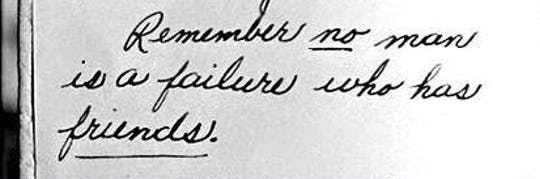 Remember no man
is a failure who has
friends.